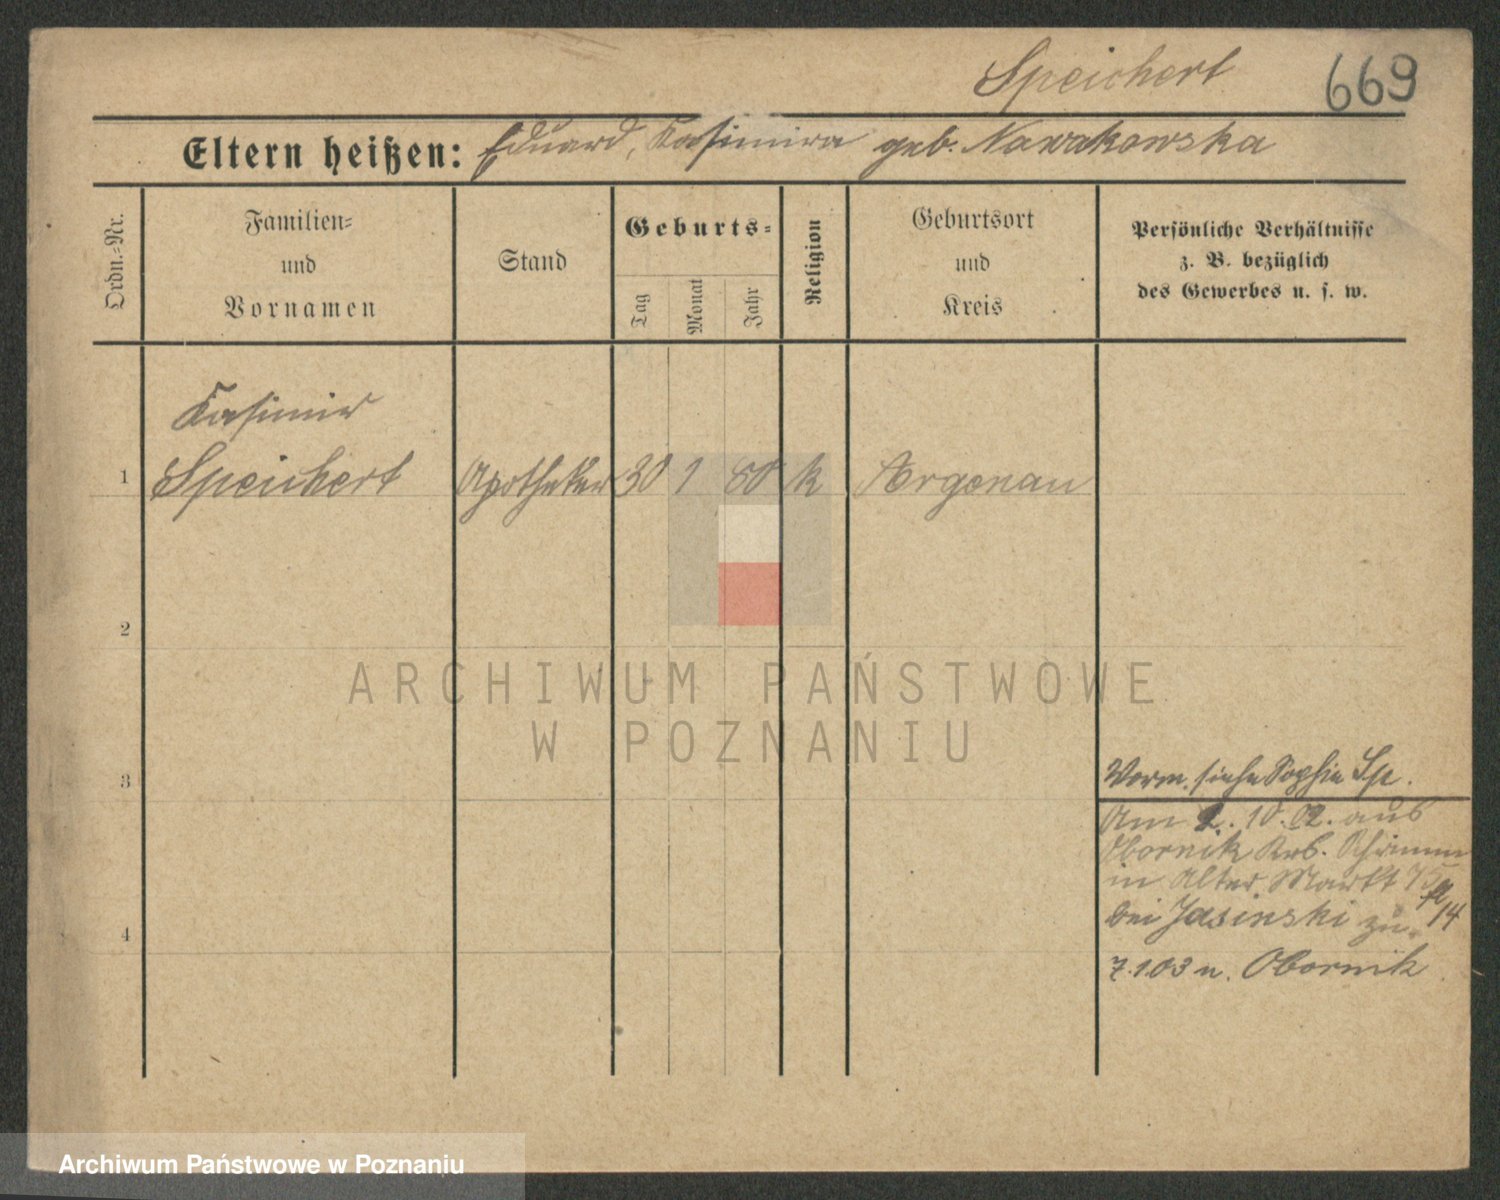 Speichert 669
Eltern heißen: Eduard, Kasimira geb. Nowakowska
Ordn.-Nr.
Familien-
und
Vornamen
Stand
Geburts-
Tag
Monat
Jahr
Religion
Geburtsort
und
Kreis
Persönliche Verhältnisse
z. B. bezüglich
des Gewerbes u. s. w.
Kasimir
1 Speichert Apotheker 30 1 80 k Argenau
2
ARCHIWUM PAŃSTWOWE
W POZNANIU
3
Vorm. siehe Sophie Sp.
Am 2. 10. 02. aus
Obornik Schrimm
in Alter Markt
bei Jasinski zu.
4
7.1.03 n. Obornik
Archiwum Państwowe w Poznaniu